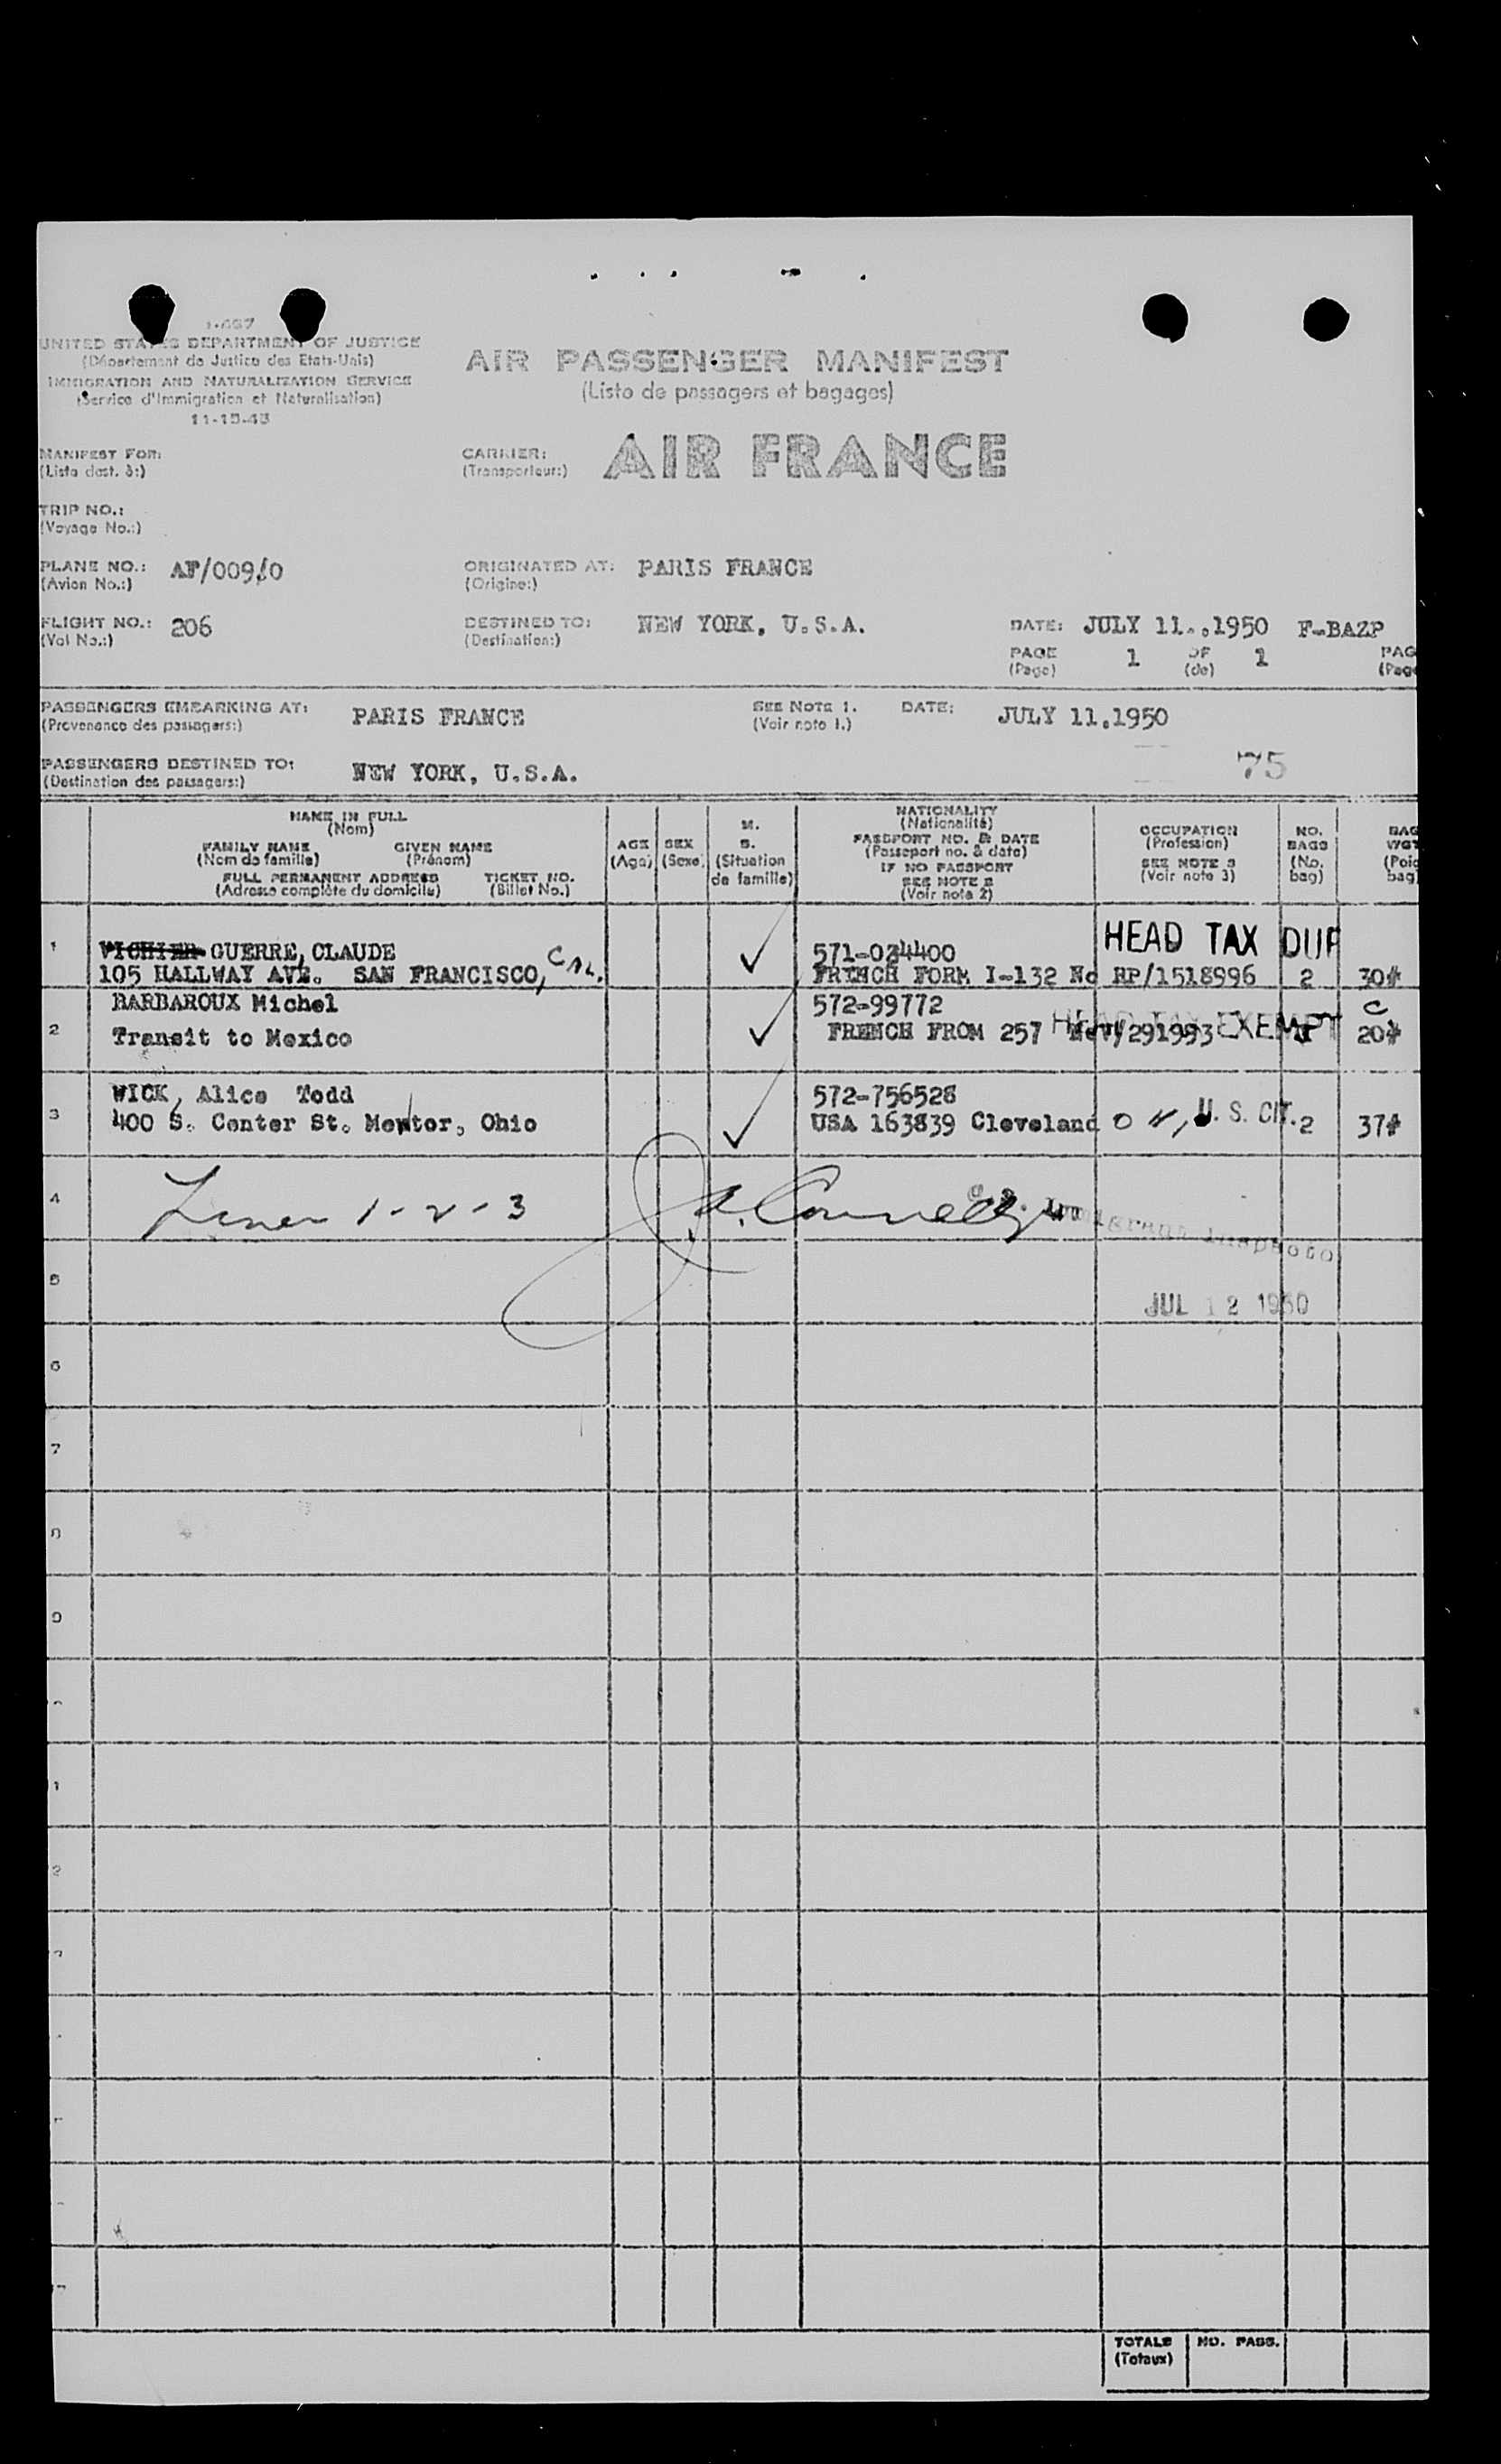 UNITED STATES DEPARTMENT OF JUSTICE
(Département de Justice des Etats-Unis)
IMMIGRATION AND NATURALIZATION SERVICE
(Service d'Immigration et Naturalisation)
11-15-43
AIR PASSENGER MANIFEST
(Liste de passagers et bagages)
MANIFEST FOR:
(Liste dest. à:)
CARRIER:
(Transporteur:)
AIR FRANCE
TRIP NO.:
(Voyage No.:)
PLANE NO.: AF/009/0
(Avion No.:)
ORIGINATED AT: PARIS FRANCE
(Origine:)
FLIGHT NO.: 206
(Vol No.:)
DESTINED TO: NEW YORK, U.S.A.
(Destination:)
DATE: JULY 11.,1950 F-BAZP
PAGE 1 OF 1 PAG
(Page) (de) (Page
PASSENGERS EMBARKING AT: PARIS FRANCE
(Provenance des passagers:)
SEE NOTE 1. DATE: JULY 11.1950
(Voir note 1.)
75
PASSENGERS DESTINED TO: NEW YORK, U.S.A.
(Destination des passagers:)
NAME IN FULL
(Nom)
FAMILY NAME GIVEN NAME
(Nom de famille) (Prénom)
FULL PERMANENT ADDRESS TICKET NO.
(Adresse complète du domicile) (Billet No.)
AGE
(Age)
SEX
(Sexe)
M.
S.
(Situation
de famille)
NATIONALITY
(Nationalité)
PASSPORT NO. & DATE
(Passeport no. & date)
IF NO PASSPORT
SEE NOTE 2
(Voir note 2)
OCCUPATION
(Profession)
SEE NOTE 3
(Voir note 3)
NO.
BAGS
(No.
bag)
BAG
WGT
(Poid
bag)
1 GUERRE, CLAUDE 571-034400 HEAD TAX DUE
105 HALLWAY AVE. SAN FRANCISCO, CAL. FRENCH FORM I-132 No RP/1518996 2 30#
BARBAROUX Michel 572-99772 HEAD TAX EXEMPT C
2 Transit to Mexico FRENCH FROM 257 291993 20#
WICK, Alice Todd 572-756528
3 400 S. Center St. Mentor, Ohio USA 163839 Cleveland U. S. CIT. 2 37#
4 Lines 1-2-3 J. A. Connelly U.S. Immigrant Inspector
5
JUL 12 1950
6
7
8
9
TOTALS NO. PASS.
(Totaux)